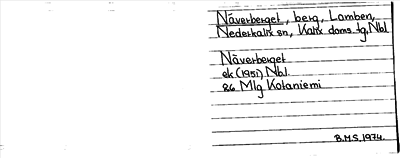 Näverberget, berg, Lomben,
Nederkalix sn, Kalix doms. tg, Nbl
Näverberget
ek (1951) Nbl
86 Mlg Kotaniemi
B.M.S. 1974.